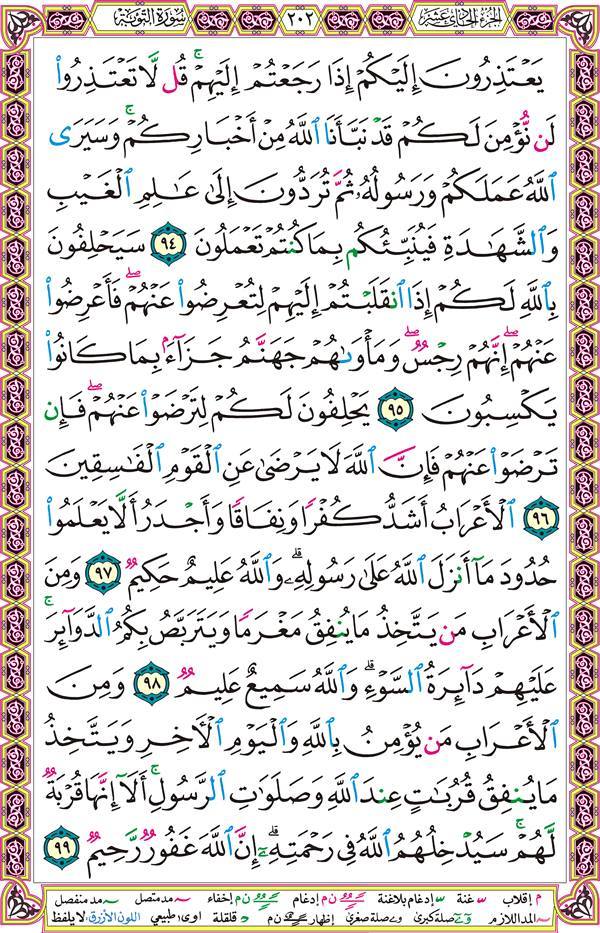 الجزء الحادي عشر ٢٠٢ سورة التوبة
يَعْتَذِرُونَ إِلَيْكُمْ إِذَا رَجَعْتُمْ إِلَيْهِمْ ۚ قُل لَّا تَعْتَذِرُوا۟
لَن نُّؤْمِنَ لَكُمْ قَدْ نَبَّأَنَا ٱللَّهُ مِنْ أَخْبَارِكُمْ ۚ وَسَيَرَى
ٱللَّهُ عَمَلَكُمْ وَرَسُولُهُۥ ثُمَّ تُرَدُّونَ إِلَىٰ عَٰلِمِ ٱلْغَيْبِ
وَٱلشَّهَٰدَةِ فَيُنَبِّئُكُم بِمَا كُنتُمْ تَعْمَلُونَ ٩٤ سَيَحْلِفُونَ
بِٱللَّهِ لَكُمْ إِذَا ٱنقَلَبْتُمْ إِلَيْهِمْ لِتُعْرِضُوا۟ عَنْهُمْ ۖ فَأَعْرِضُوا۟
عَنْهُمْ ۖ إِنَّهُمْ رِجْسٌ ۖ وَمَأْوَىٰهُمْ جَهَنَّمُ جَزَآءًۢ بِمَا كَانُوا۟
يَكْسِبُونَ ٩٥ يَحْلِفُونَ لَكُمْ لِتَرْضَوْا۟ عَنْهُمْ ۖ فَإِن
تَرْضَوْا۟ عَنْهُمْ فَإِنَّ ٱللَّهَ لَا يَرْضَىٰ عَنِ ٱلْقَوْمِ ٱلْفَٰسِقِينَ
٩٦ ٱلْأَعْرَابُ أَشَدُّ كُفْرًا وَنِفَاقًا وَأَجْدَرُ أَلَّا يَعْلَمُوا۟
حُدُودَ مَآ أَنزَلَ ٱللَّهُ عَلَىٰ رَسُولِهِۦ ۗ وَٱللَّهُ عَلِيمٌ حَكِيمٌ ٩٧ وَمِنَ
ٱلْأَعْرَابِ مَن يَتَّخِذُ مَا يُنفِقُ مَغْرَمًا وَيَتَرَبَّصُ بِكُمُ ٱلدَّوَآئِرَ ۚ
عَلَيْهِمْ دَآئِرَةُ ٱلسَّوْءِ ۗ وَٱللَّهُ سَمِيعٌ عَلِيمٌ ٩٨ وَمِنَ
ٱلْأَعْرَابِ مَن يُؤْمِنُ بِٱللَّهِ وَٱلْيَوْمِ ٱلْءَاخِرِ وَيَتَّخِذُ
مَا يُنفِقُ قُرُبَٰتٍ عِندَ ٱللَّهِ وَصَلَوَٰتِ ٱلرَّسُولِ ۚ أَلَآ إِنَّهَا قُرْبَةٌ
لَّهُمْ ۚ سَيُدْخِلُهُمُ ٱللَّهُ فِى رَحْمَتِهِۦٓ ۗ إِنَّ ٱللَّهَ غَفُورٌ رَّحِيمٌ ٩٩
م إقلاب غنة إدغام بلاغنة ن م إدغام ن م إخفاء مد متصل مد منفصل
المد اللازم صلة كبرى صلة صغرى إظهار ن م قلقلة اوى طبيعي اللون الأزرق: لا يلفظ